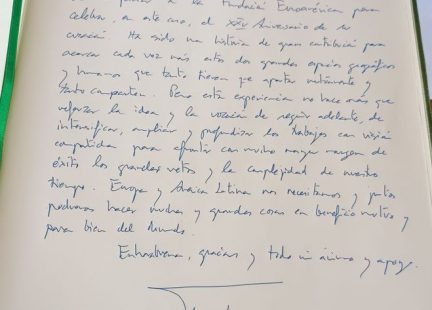 a la Fundación Euroamérica para
celebrar, en este caso, el XXV Aniversario de su
creación. Ha sido una historia de gran contribución para
acercar cada vez más estos dos grandes espacios geográficos
y humanos que tanto tienen que aportar mutuamente y
tanto comparten. Pero esta experiencia no hace más que
reforzar la idea y la vocación de seguir adelante, de
intensificar, ampliar y profundizar los trabajos con visión
compartida para afrontar con mucho mayor margen de
éxito los grandes retos y la complejidad de nuestro
tiempo. Europa y América Latina nos necesitamos y juntos
podremos hacer muchas y grandes cosas en beneficio mutuo y
para bien del Mundo.
Enhorabuena, gracias y todo mi ánimo y apoyo.